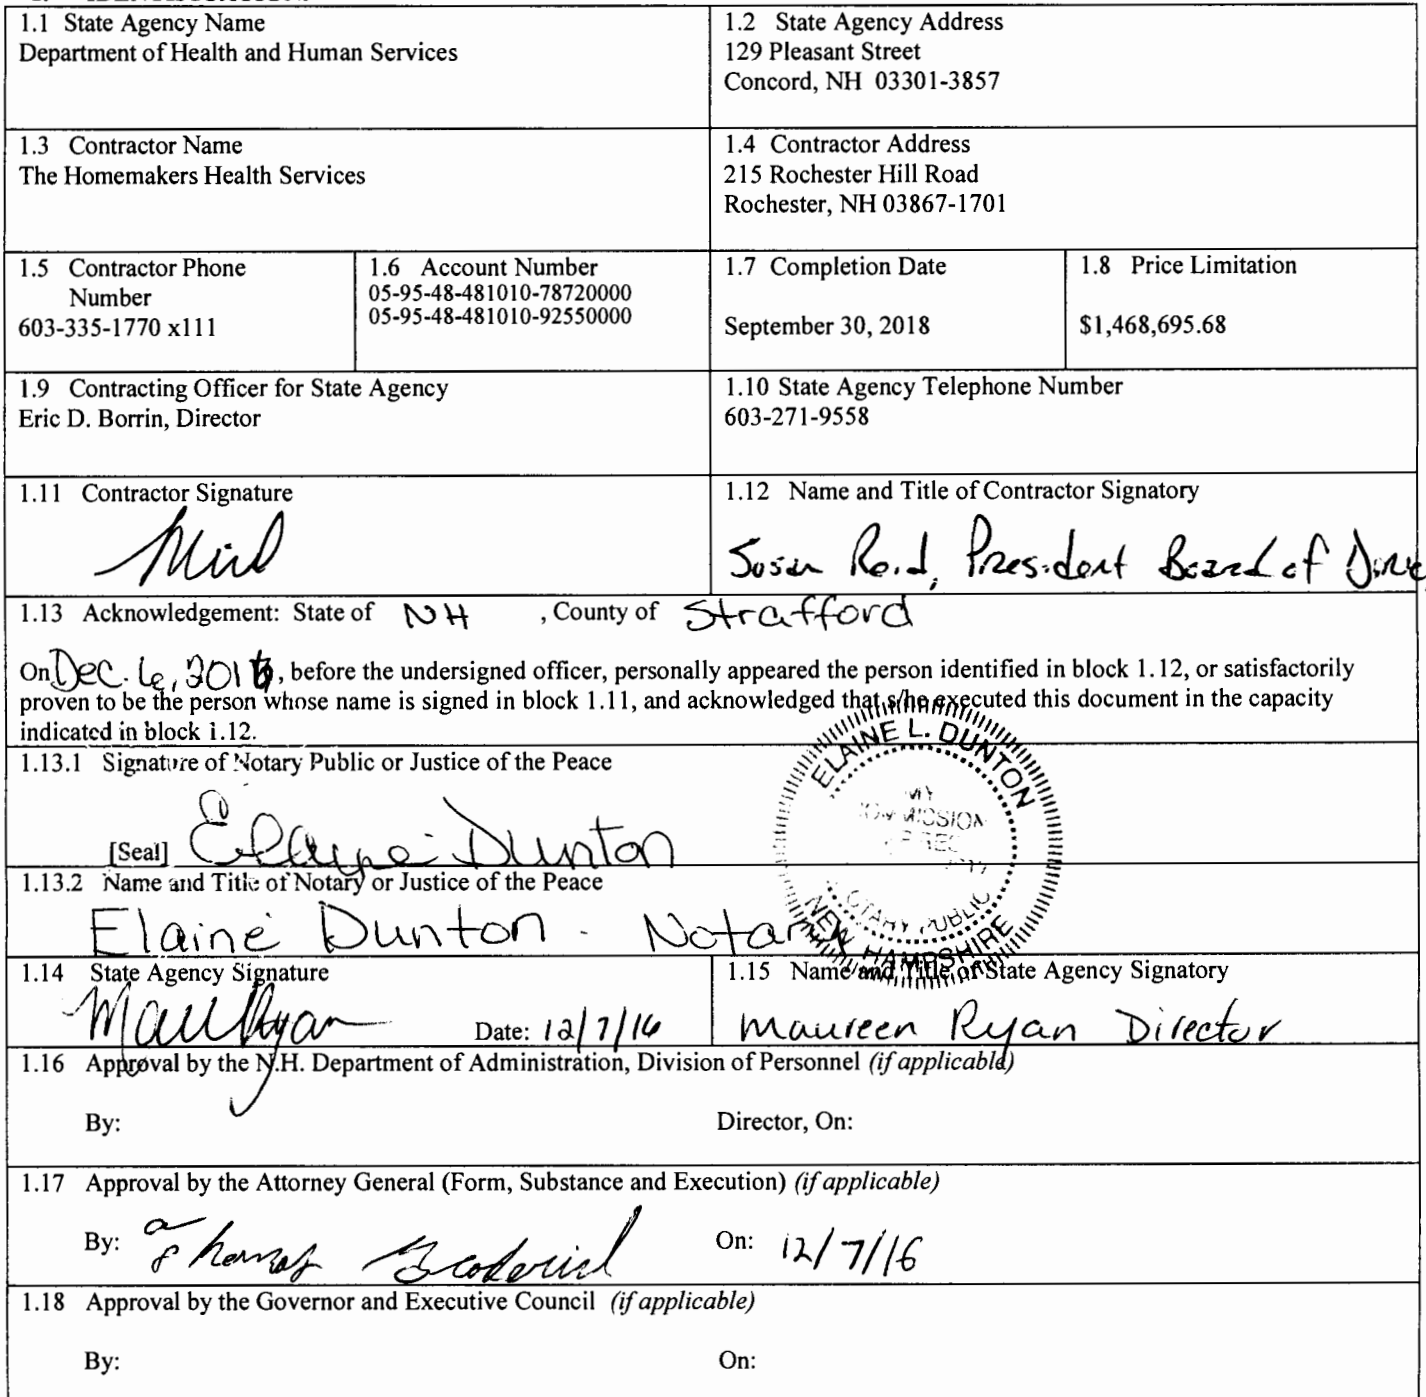 1.1 State Agency Name
Department of Health and Human Services
1.2 State Agency Address
129 Pleasant Street
Concord, NH 03301-3857
1.3 Contractor Name
The Homemakers Health Services
1.4 Contractor Address
215 Rochester Hill Road
Rochester, NH 03867-1701
1.5 Contractor Phone
Number
603-335-1770 x111
1.6 Account Number
05-95-48-481010-78720000
05-95-48-481010-92550000
1.7 Completion Date
September 30, 2018
1.8 Price Limitation
$1,468,695.68
1.9 Contracting Officer for State Agency
Eric D. Borrin, Director
1.10 State Agency Telephone Number
603-271-9558
1.11 Contractor Signature
1.12 Name and Title of Contractor Signatory
Susan Reid, President Board of Dire
1.13 Acknowledgement: State of NH , County of Strafford
On Dec. 6, 2016, before the undersigned officer, personally appeared the person identified in block 1.12, or satisfactorily
proven to be the person whose name is signed in block 1.11, and acknowledged that s/he executed this document in the capacity
indicated in block 1.12.
1.13.1 Signature of Notary Public or Justice of the Peace
[Seal] Elaine Dunton
ELAINE L. DUNTON
MY
COMMISSION
NOTARY PUBLIC
NEW HAMPSHIRE
1.13.2 Name and Title of Notary or Justice of the Peace
Elaine Dunton - Notary
1.14 State Agency Signature
Date: 12/7/16
1.15 Name and Title of State Agency Signatory
Maureen Ryan Director
1.16 Approval by the N.H. Department of Administration, Division of Personnel (if applicable)
By: Director, On:
1.17 Approval by the Attorney General (Form, Substance and Execution) (if applicable)
By: On: 12/7/16
1.18 Approval by the Governor and Executive Council (if applicable)
By: On: